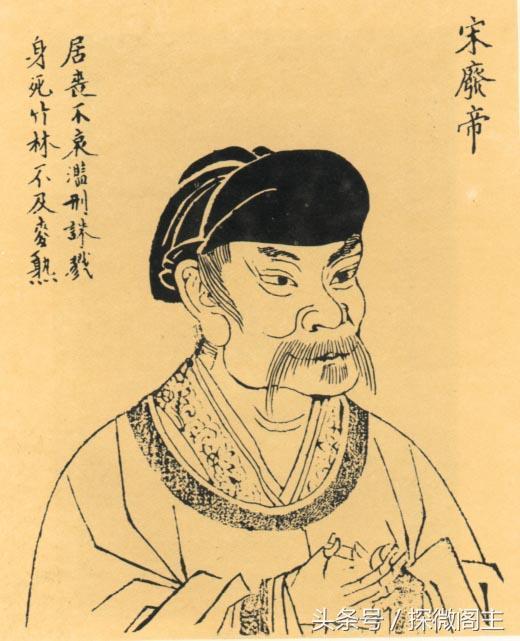 宋廢帝
居喪不哀濫刑誅戮
身死竹林不及麥熟
头条号／探微阁主